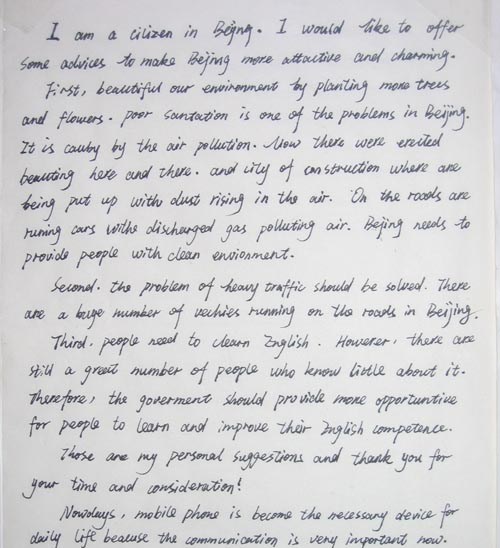 I am a cilizen in Bejng. I would like to offer
some advices to make Beijing more attactive and charming.
First, beautiful our environment by planting more trees
and flowers. Poor santation is one of the problems in Beijing.
It is cauby by the air pollution. Now there were erected
beauting here and there. and lily of construction where are
being put up with dust rising in the air. On the roads are
runing cars withe discharged gas polluting air. Bejing needs to
provide people with clean enviorment.
Second. the problem of heavy traffic should be solved. There
are a huge number of vechies running on the roads in Beijing.
Third. people need to learn English. However, there are
still a great number of people who know little about it.
Therefore, the goverment should provide more opportuntive
for people to learn and improve their English competence.
Those are my personal suggestions and thank you for
your time and consideration!
Nowdays, mobile phone is become the necessary device for
daily life because the communication is very important now.